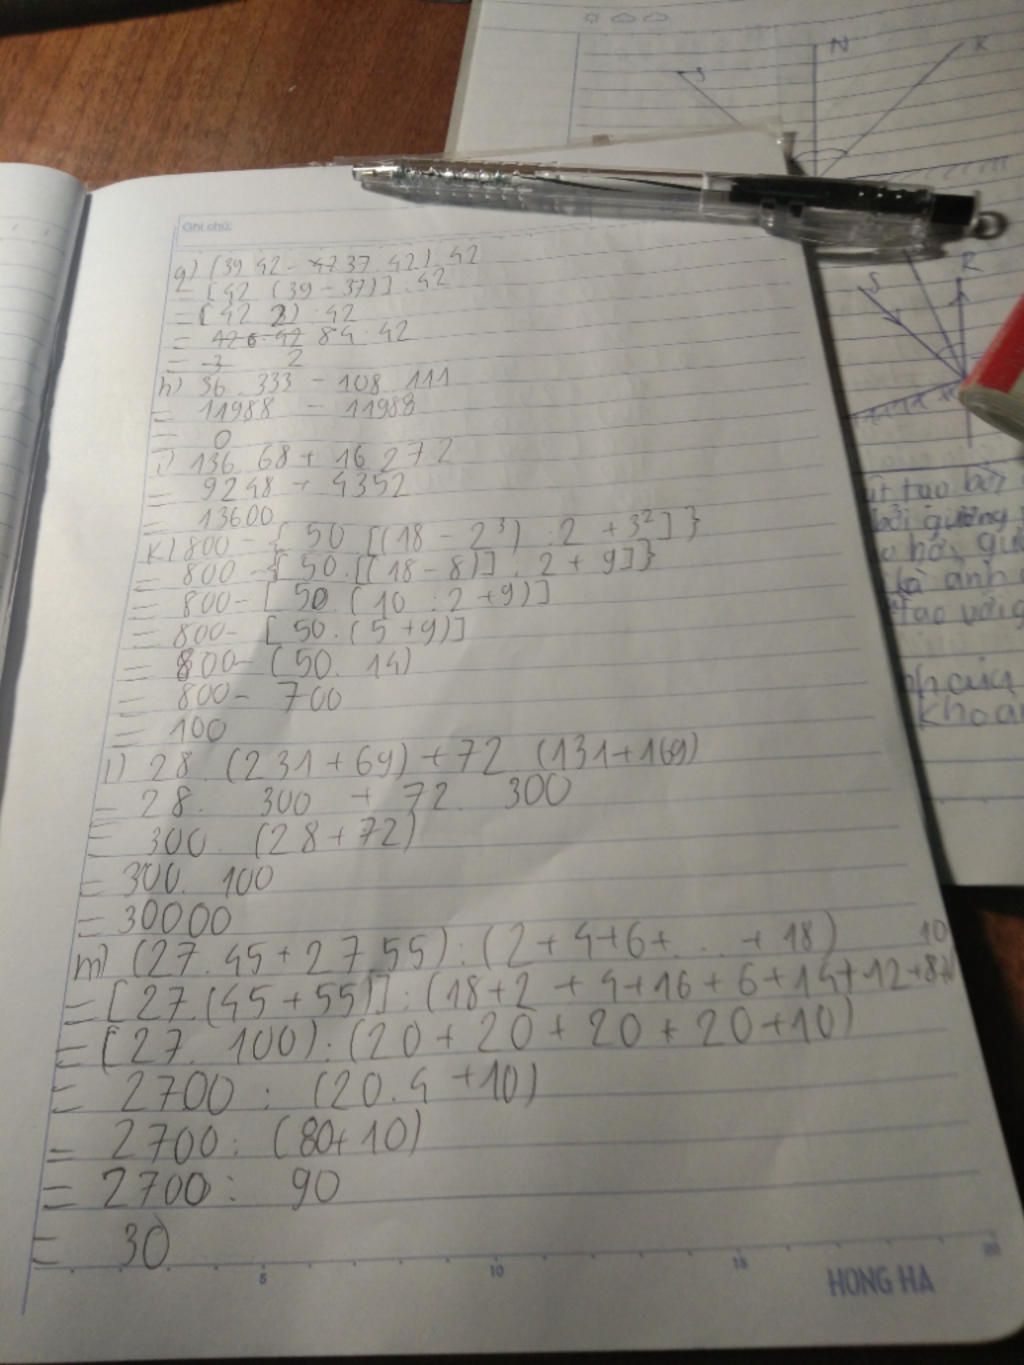 Ghi chú:
g) (39.42 - 37.42) : 42
= [42.(39 - 37)] : 42
= (42.2) : 42
= 84 : 42
= 2
h) 36.333 - 108.111
= 11988 - 11988
= 0
i) 136.68 + 16.272
= 9248 + 4352
= 13600
k) 800 - { 50.[(18 - 2³) : 2 + 3²] }
= 800 - { 50.[(18 - 8)] : 2 + 9]}
= 800 - [50.(10 : 2 + 9)]
= 800 - [50.(5 + 9)]
= 800 - (50.14)
= 800 - 700
= 100
l) 28.(231 + 69) + 72.(131 + 169)
= 28.300 + 72.300
= 300.(28 + 72)
= 300.100
= 30000
m) (27.45 + 27.55) : (2 + 4 + 6 + ... + 18)
= [27.(45 + 55)] : (18 + 2 + 4 + 16 + 6 + 14 + 12 + 8 + 10
= (27.100) : (20 + 20 + 20 + 20 + 10)
= 2700 : (20.4 + 10)
= 2700 : (80 + 10)
= 2700 : 90
= 30
5 10 15 20
HONG HA
S N R
S R
tạo bởi
bởi gương
là ảnh
tạo với g
của
khoản